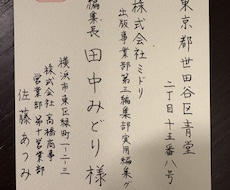 東京都世田谷区青堂
二丁目十五番八号
株式会社ミドリ
出版事業部第三編集部実用編集グ
編集長 田中みどり様
横浜市東区緑町一-二-三
株式会社高橋商事
営業部第十営業部
佐藤あつみ